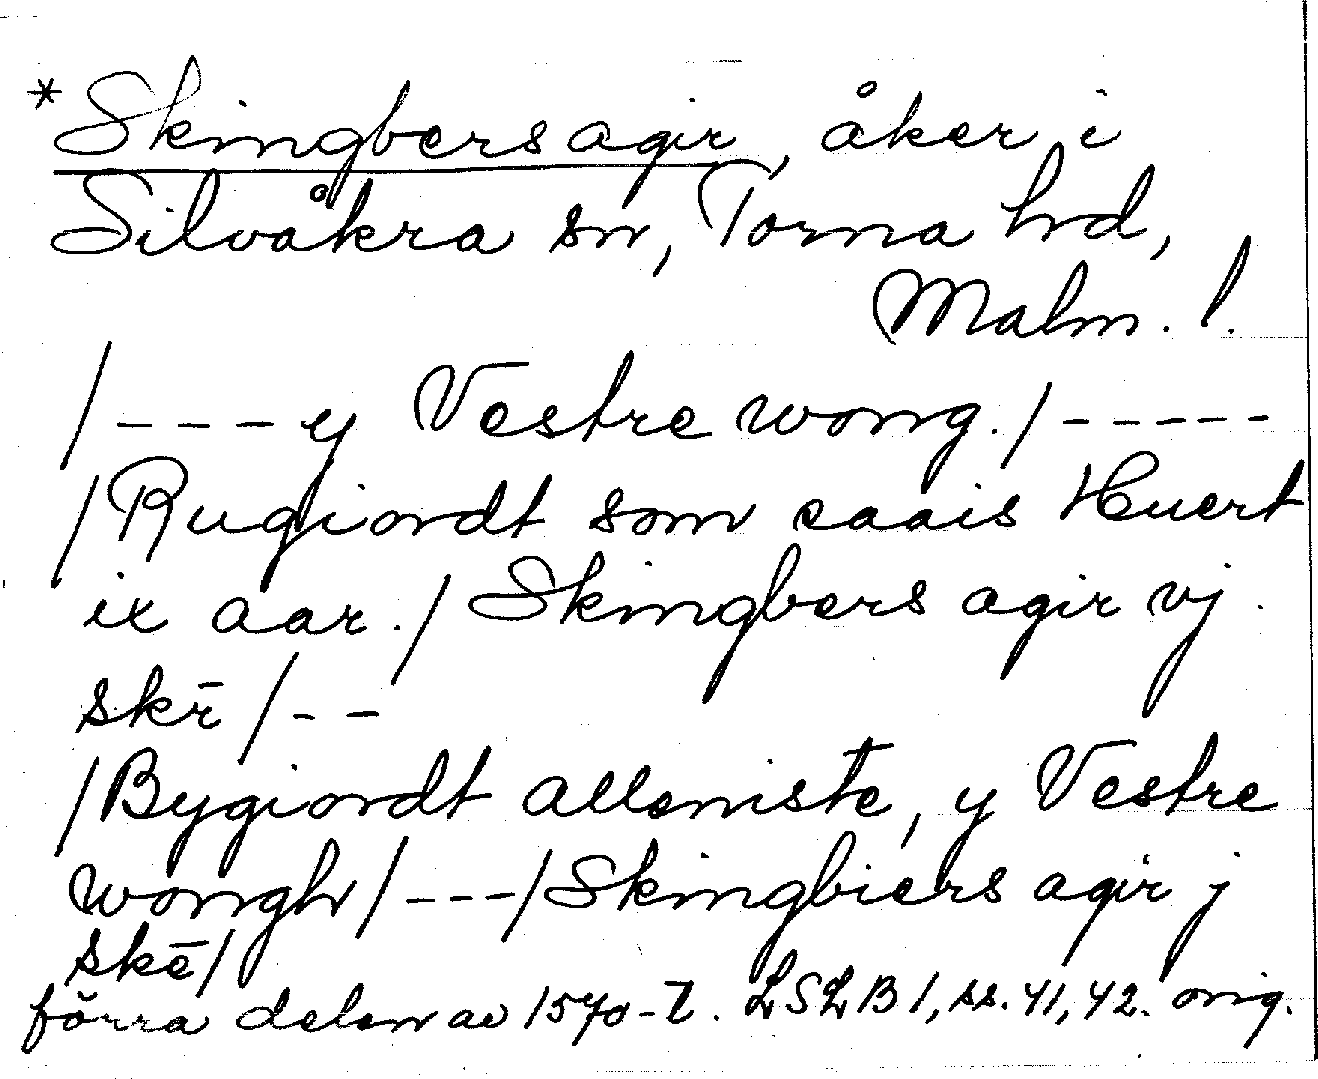 * Skingbers agir, åker i
Silvåkra sn, Torna hd,
Malm. l.
/---y Vestre wong./-----
/Rugiordt som saais Huert
ix aar./Skingbers agir vj
skr̄/--
/Bygiordt alleniste, y Vestre
wongh/---/Skingbiers agir j
skē/
förra delen av 1570-t. LSLB 1, ss. 41, 42. orig.